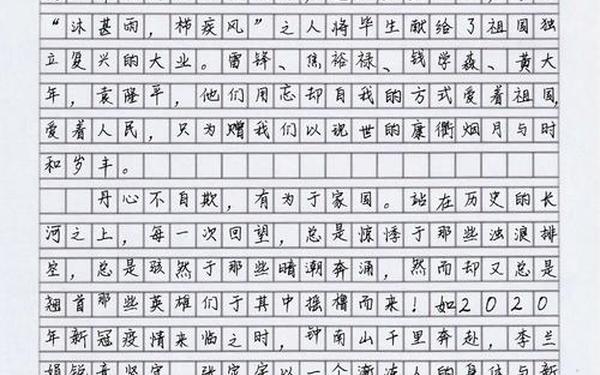 “沐甚雨，栉疾风”之人将毕生献给了祖国独
立复兴的大业。雷锋、焦裕禄、钱学森、黄大
年，袁隆平，他们用忘却自我的方式爱着祖国，
爱着人民，只为赠我们以现世的康衢烟月与时
和岁丰。
丹心不自欺，有为于家国。站在历史的长
河之上，每一次回望，总是惊悸于那些浊浪排
空，总是骇然于那些暗潮奔涌，然而却又总是
翘首那些英雄们于其中摇橹而来！如2020
年新冠疫情来临之时，钟南山千里奔赴，李兰
娟锐意坚守，张定宇以一个渐冻人的身体与新